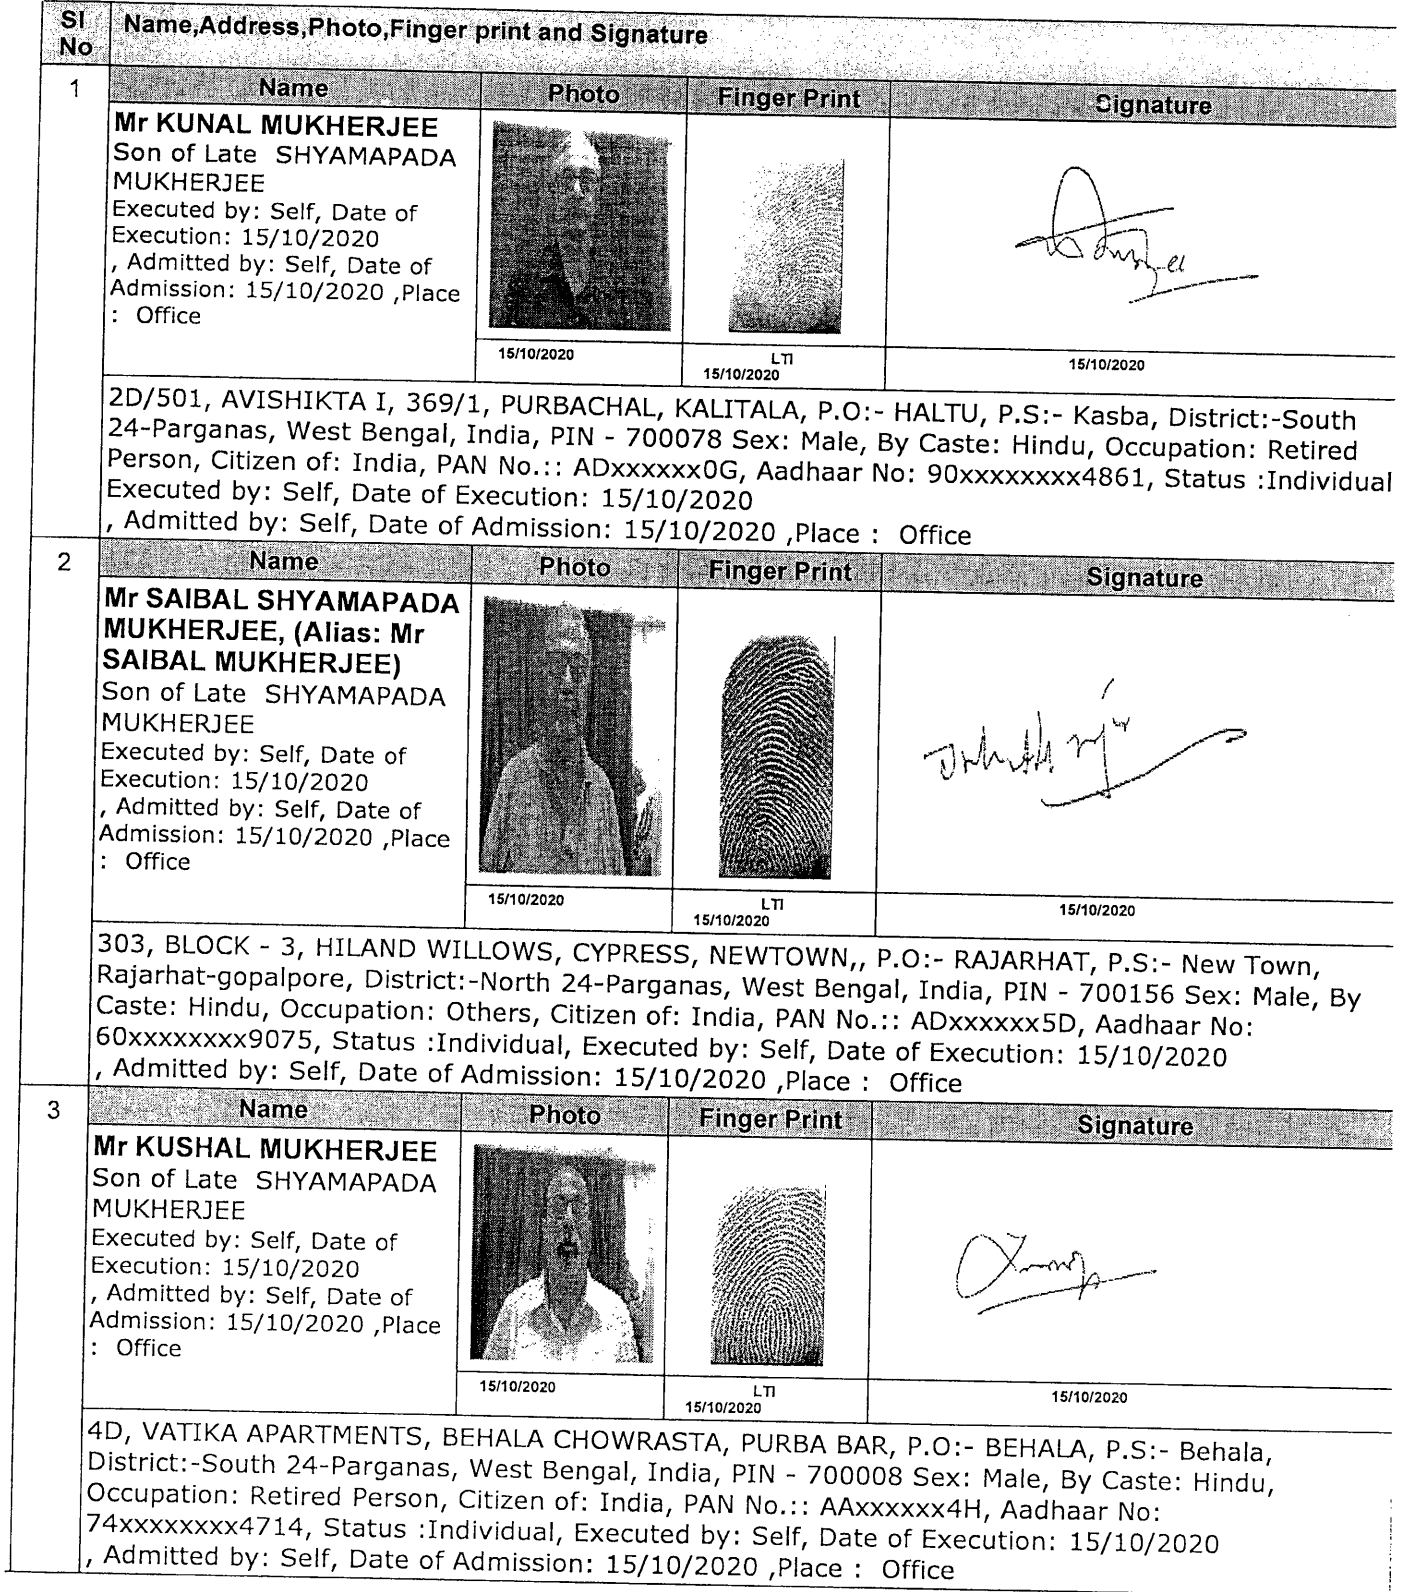 SI No
Name,Address,Photo,Finger print and Signature
1
Name
Photo
Finger Print
Signature
Mr KUNAL MUKHERJEE
Son of Late SHYAMAPADA
MUKHERJEE
Executed by: Self, Date of
Execution: 15/10/2020
, Admitted by: Self, Date of
Admission: 15/10/2020 ,Place
: Office
15/10/2020
LTI
15/10/2020
15/10/2020
2D/501, AVISHIKTA I, 369/1, PURBACHAL, KALITALA, P.O:- HALTU, P.S:- Kasba, District:-South
24-Parganas, West Bengal, India, PIN - 700078 Sex: Male, By Caste: Hindu, Occupation: Retired
Person, Citizen of: India, PAN No.:: ADxxxxxx0G, Aadhaar No: 90xxxxxxxx4861, Status :Individual
Executed by: Self, Date of Execution: 15/10/2020
, Admitted by: Self, Date of Admission: 15/10/2020 ,Place : Office
2
Name
Photo
Finger Print
Signature
Mr SAIBAL SHYAMAPADA
MUKHERJEE, (Alias: Mr
SAIBAL MUKHERJEE)
Son of Late SHYAMAPADA
MUKHERJEE
Executed by: Self, Date of
Execution: 15/10/2020
, Admitted by: Self, Date of
Admission: 15/10/2020 ,Place
: Office
15/10/2020
LTI
15/10/2020
15/10/2020
303, BLOCK - 3, HILAND WILLOWS, CYPRESS, NEWTOWN,, P.O:- RAJARHAT, P.S:- New Town,
Rajarhat-gopalpore, District:-North 24-Parganas, West Bengal, India, PIN - 700156 Sex: Male, By
Caste: Hindu, Occupation: Others, Citizen of: India, PAN No.:: ADxxxxxx5D, Aadhaar No:
60xxxxxxxx9075, Status :Individual, Executed by: Self, Date of Execution: 15/10/2020
, Admitted by: Self, Date of Admission: 15/10/2020 ,Place : Office
3
Name
Photo
Finger Print
Signature
Mr KUSHAL MUKHERJEE
Son of Late SHYAMAPADA
MUKHERJEE
Executed by: Self, Date of
Execution: 15/10/2020
, Admitted by: Self, Date of
Admission: 15/10/2020 ,Place
: Office
15/10/2020
LTI
15/10/2020
15/10/2020
4D, VATIKA APARTMENTS, BEHALA CHOWRASTA, PURBA BAR, P.O:- BEHALA, P.S:- Behala,
District:-South 24-Parganas, West Bengal, India, PIN - 700008 Sex: Male, By Caste: Hindu,
Occupation: Retired Person, Citizen of: India, PAN No.:: AAxxxxxx4H, Aadhaar No:
74xxxxxxxx4714, Status :Individual, Executed by: Self, Date of Execution: 15/10/2020
, Admitted by: Self, Date of Admission: 15/10/2020 ,Place : Office